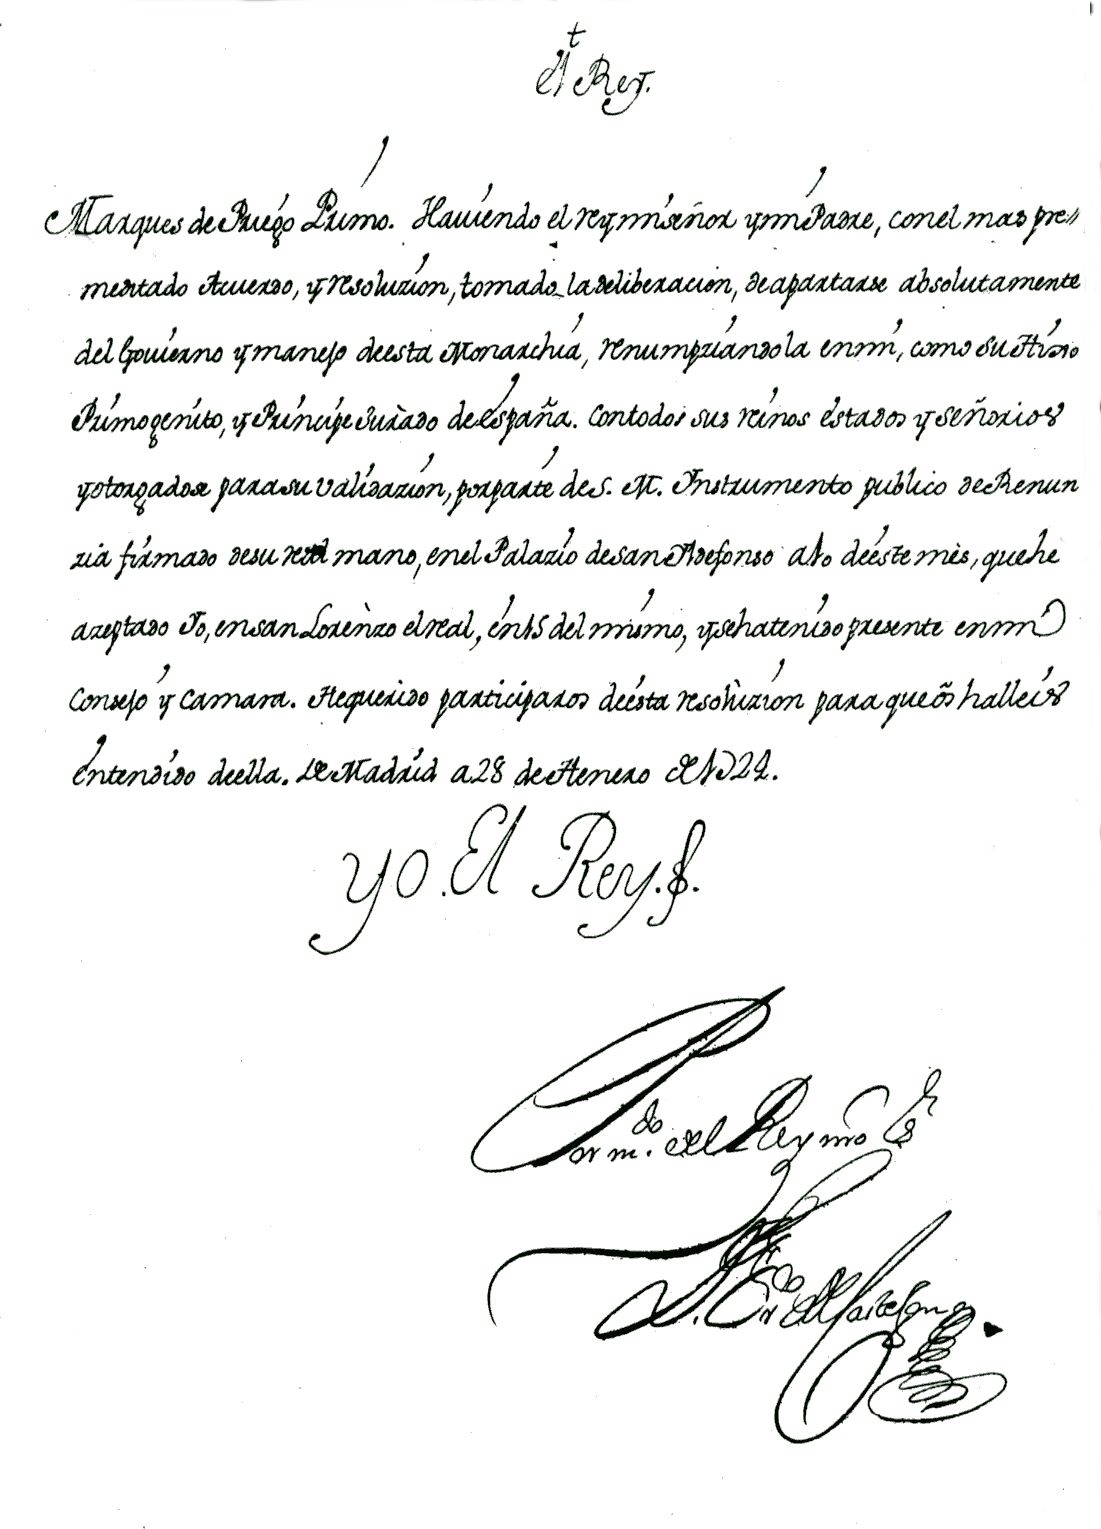 t
El Rey.
Marques de Priego Primo. Haviendo el rey mi señor y mi Padre, con el mas pre//
meditado Acuerdo, y resoluzion, tomado la deliberacion, de apartarse absolutamente
del Govierno y manejo de esta Monarchia, renumpziandola en mi, como su Hixo
Primogenito, y Principe Jurado de españa. Con todos sus reinos estados y señorios
y otorgadose para su validazion, por parte de S. M. Instrumento publico de Renun
zia firmado de su real mano, en el Palazio de san Ildefonso a 10 de este mès, que he
azeptado Yo, en san Lorènzo el real, en 15 del mismo, y se ha tenido presente en mi
Consejo y Camara. He querido participaros de esta resoluzion para que os halleis
entendido de ella. De Madrid a 28 de Henero de 1724.
Yo. El Rey.
Por m.do del Rey nro S.r
D.